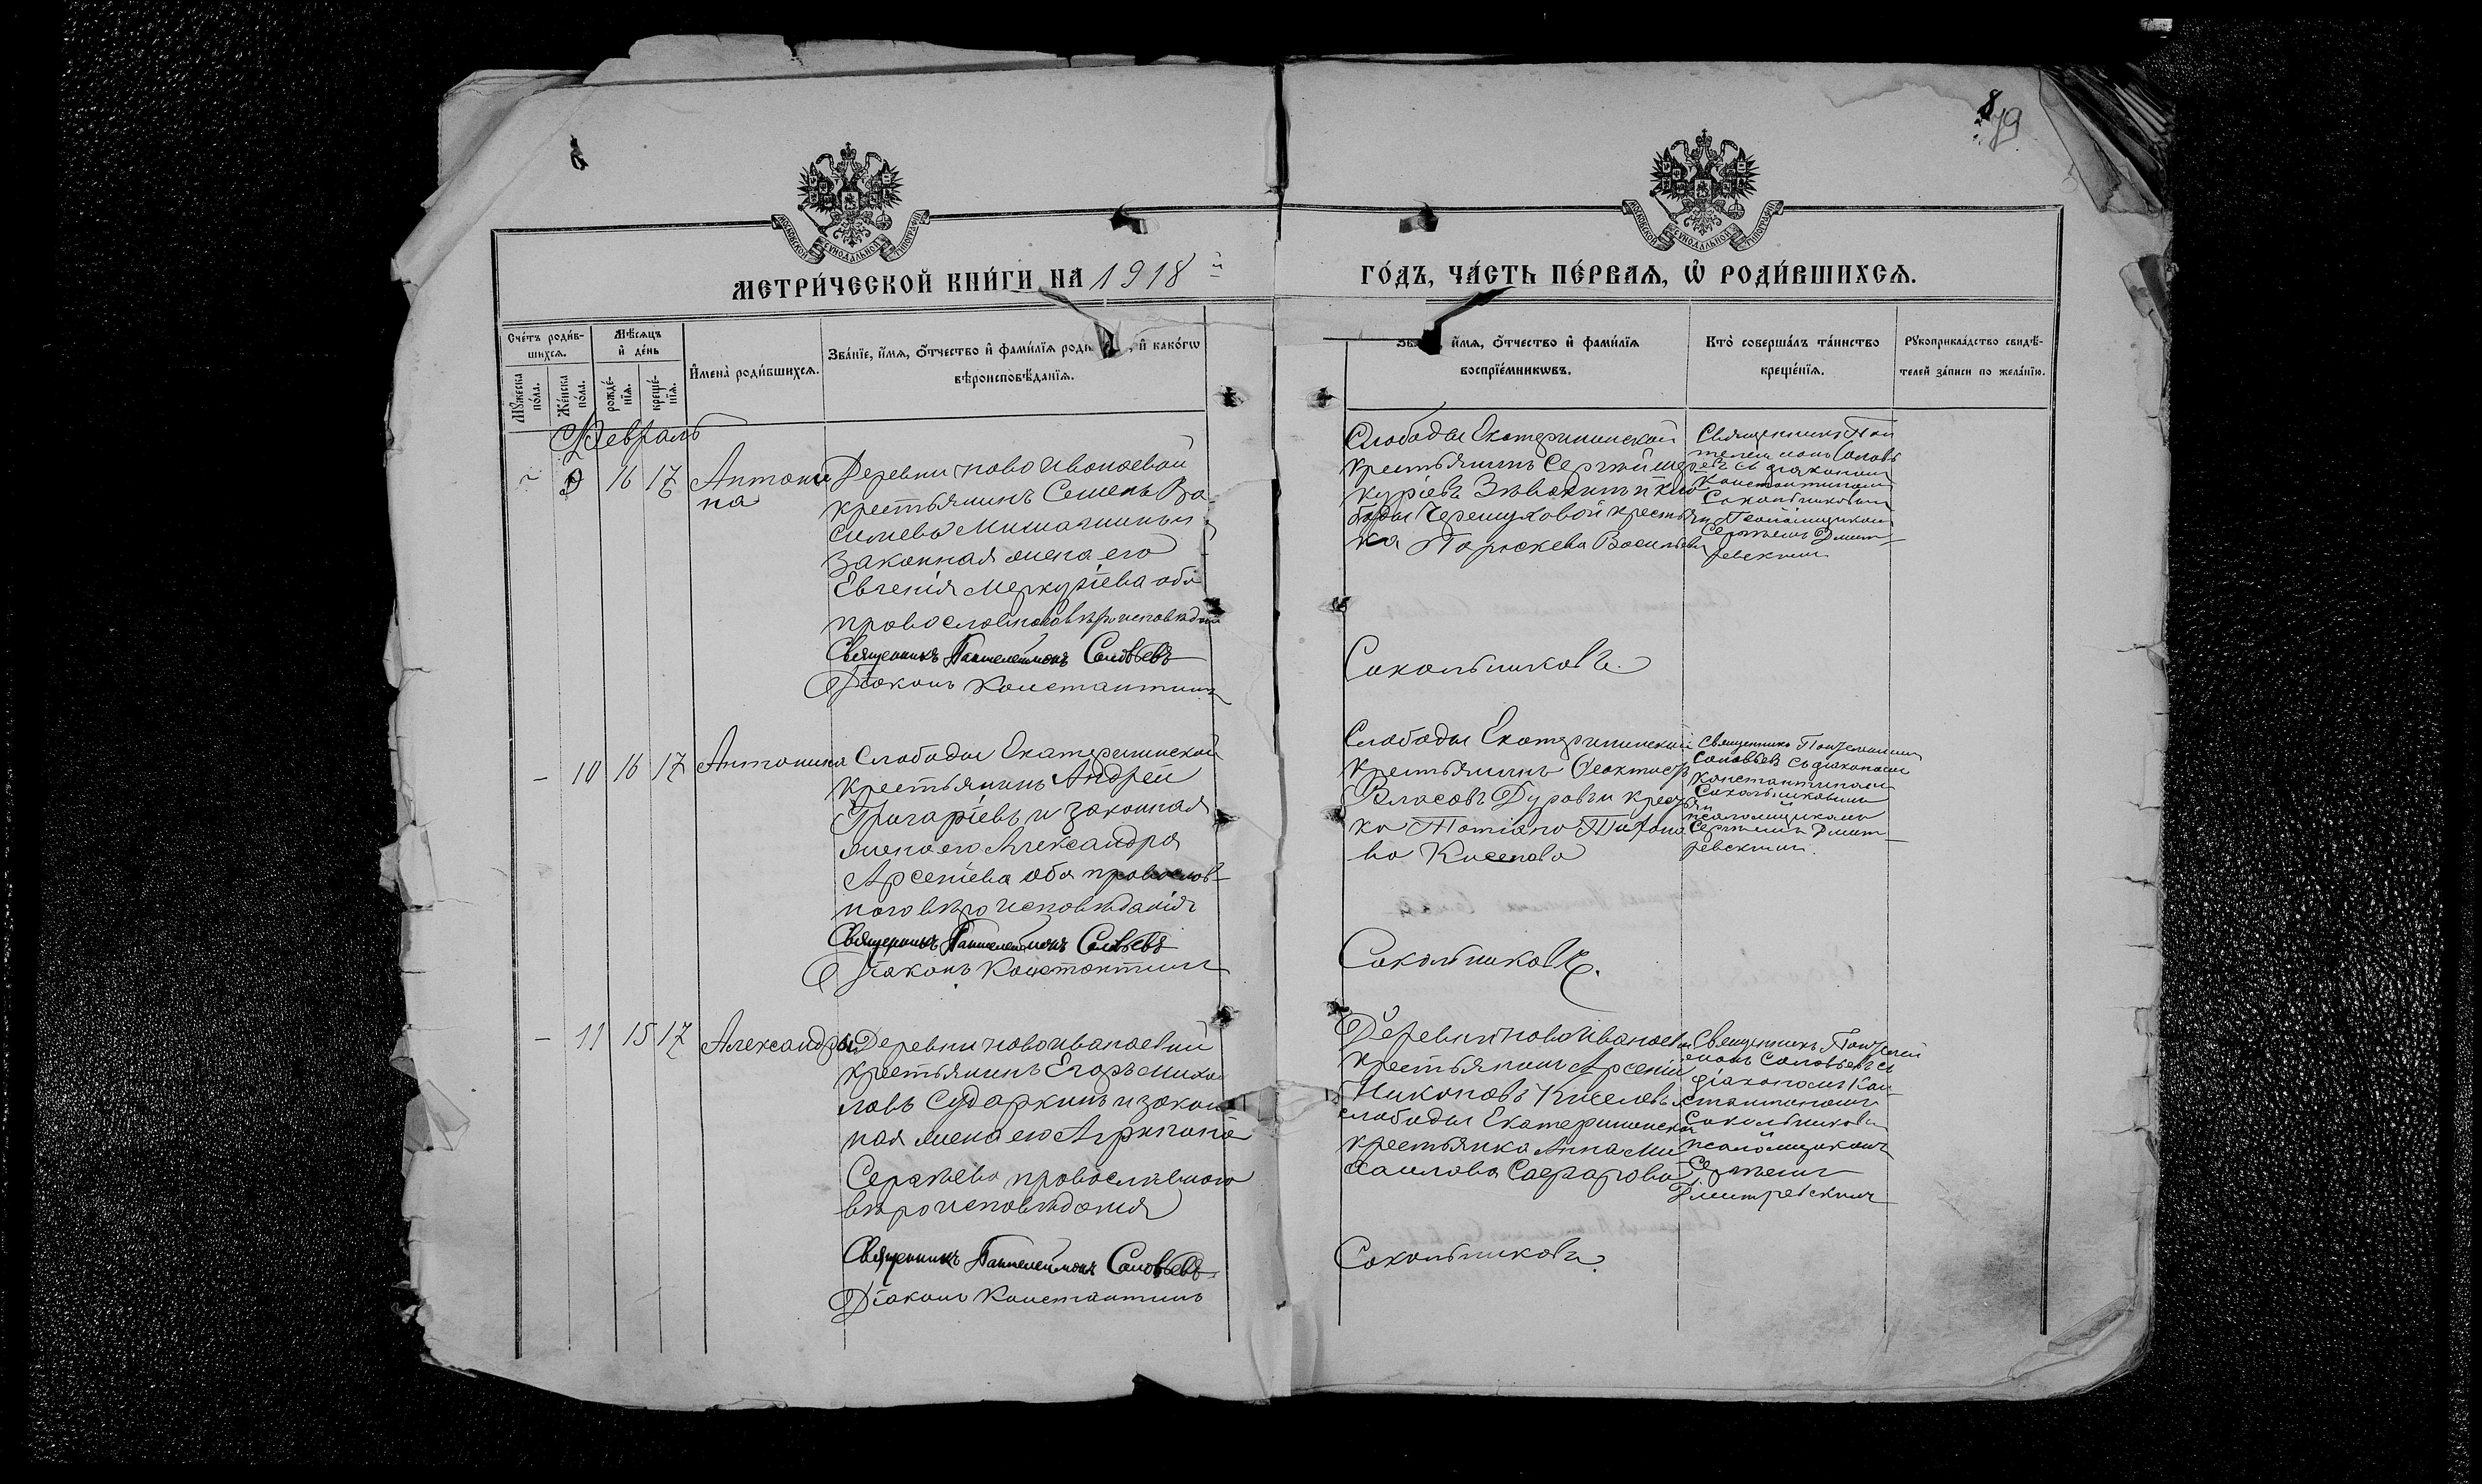 879
МОСКОВСКОЙ СѴНОДАЛЬНОЙ ТИПОГРАФІИ
МОСКОВСКОЙ СѴНОДАЛЬНОЙ ТИПОГРАФІИ
МЕТРИ́ЧЕСКОЙ КНИ́ГИ НА 1918 й
ГО́ДЪ, ЧА́СТЬ ПЕ́РВАЯ, Ѡ҆ РОДИ́ВШИХСЯ.
Сче́тъ роди́в-
шихся.
Мѣ́сяцъ
и҆ де́нь
Мꙋ́жеска
по́ла.
Же́нска
по́ла.
рожде́-
нїя.
креще́-
нїя.
И҆мена̀ роди́вшихся.
Зва́нїе, и҆́мя, о҆́тчество и҆ фами́лїя роди , и҆ како́гѡ
вѣроисповѣ́данїя.
Зва и҆́мя, о҆́тчество и҆ фами́лїя
воспрїе́мникѡвъ.
Кто̀ соверша́лъ та́инство
креще́нїя.
Рꙋкоприкла́дство свидѣ́-
телей за́писи по жела́нїю.
Февраль
- 9 16 17 Антони
на
Деревни Ново Иванаевой
крестьянинъ Семенъ Ва-
сильевъ и
законная жена его
Евгенія Меркуріева оба
православнаго вѣроисповѣданія
Священникъ Пантелеймонъ Соловьевъ
Діаконъ Константинъ
Слободы Екатерининской
крестьянинъ Сергѣй Мер
куріевъ и сло
боды Черемуховой крестьян
ка Параскева Васильева
Священникъ Пан
телеймонъ Соловь
евъ съ діакономъ
Константиномъ
Сокольниковымъ
и псаломщикомъ
Сергѣемъ Дмит-
ревскимъ
Сокольниковъ.
- 10 16 17 Антонина
Слободы Екатерининской
крестьянинъ Андрей
Григаріевъ и законная
жена его Александра
Арсеніева оба православ-
наго вѣроисповѣданія
Священникъ Пантелеймонъ Соловьевъ
Діаконъ Константинъ
Слободы Екатерининской
крестьянинъ
Власовъ Дуровъ и крестьян
ка Татіана Тихоно
ва Киселева
Священникъ Пантелеимонъ
Соловьевъ съ діакономъ
Константиномъ
Сокольниковымъ
псаломщикомъ
Сергѣемъ Дмит-
ревскимъ.
Сокольниковъ.
- 11 15 17 Александра
Деревни Ново Иванаевой
крестьянинъ Егоръ Михаи
ловъ Сударкинъ и закон
ная жена его Агрипина
Сергѣева православнаго
вѣроисповѣданія
Священникъ Пантелеймонъ Соловьевъ
Діаконъ Константинъ
Деревни Ново Иванаевой
крестьянинъ Арсеній
Никоновъ Киселевъ и
слободы Екатерининской
крестьянка Анна Ми
хаилова
Священникъ Пантелей
монъ Соловьевъ съ
діакономъ Кон-
стантиномъ
Сокольниковым
псаломщикомъ
Сергѣемъ
Дмитревскимъ
Сокольниковъ.